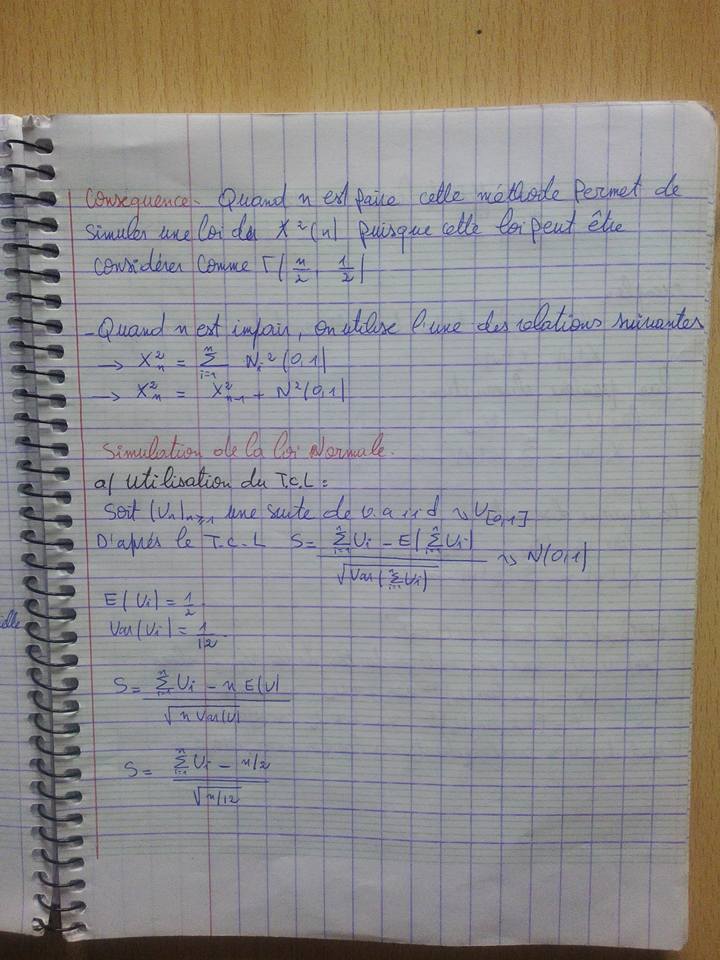 Conséquence. Quand n est paire cette méthode permet de
simuler une loi du X²(n) puisque cette loi peut être
considérer comme Γ(n/2, 1/2)
- Quand n est impair, on utilise l'une des relations suivantes
→ X²_n = Σ_{i=1}^{n} N_i²(0,1)
→ X²_n = X²_{n-1} + N²(0,1)
Simulation de la loi Normale.
a/ Utilisation du T.C.L :
Soit (U_n)_{n≥1} une suite de v.a i.i.d ~> U_[0,1]
D'après le T.C.L S = (Σ_{i=1}^{n} U_i - E(Σ_{i=1}^{n} U_i)) / √(Var(Σ_{i=1}^{n} U_i)) ~> N(0,1)
E(U_i) = 1/2.
Var(U_i) = 1/12.
S = (Σ_{i=1}^{n} U_i - n E(U)) / √(n Var(U))
S = (Σ_{i=1}^{n} U_i - n/2) / √(n/12)